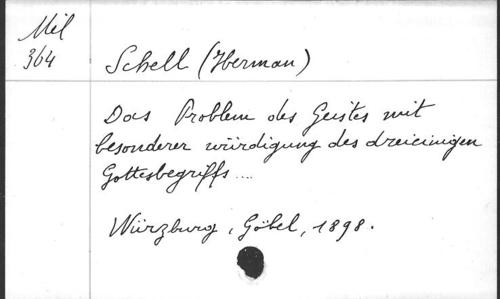 Mil
364
Schell (Herman)
Das Problem des Geistes mit
besonderer würdigung des dreieinigen
Gottesbegriffs ....
Würzburg, Göbel, 1898.